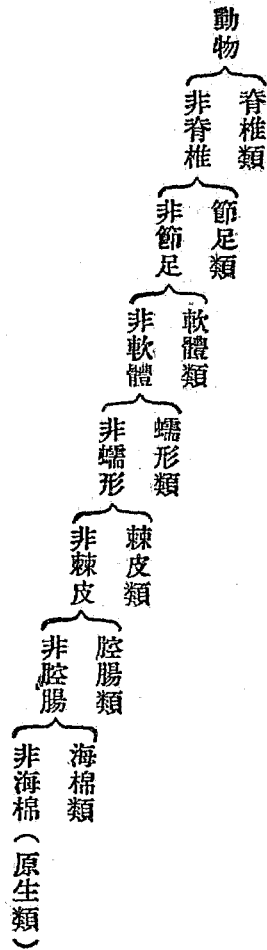 動物
脊椎類
非脊椎
節足類
非節足
軟體類
非軟體
蠕形類
非蠕形
棘皮類
非棘皮
腔腸類
非腔腸
海棉類
非海棉（原生類）